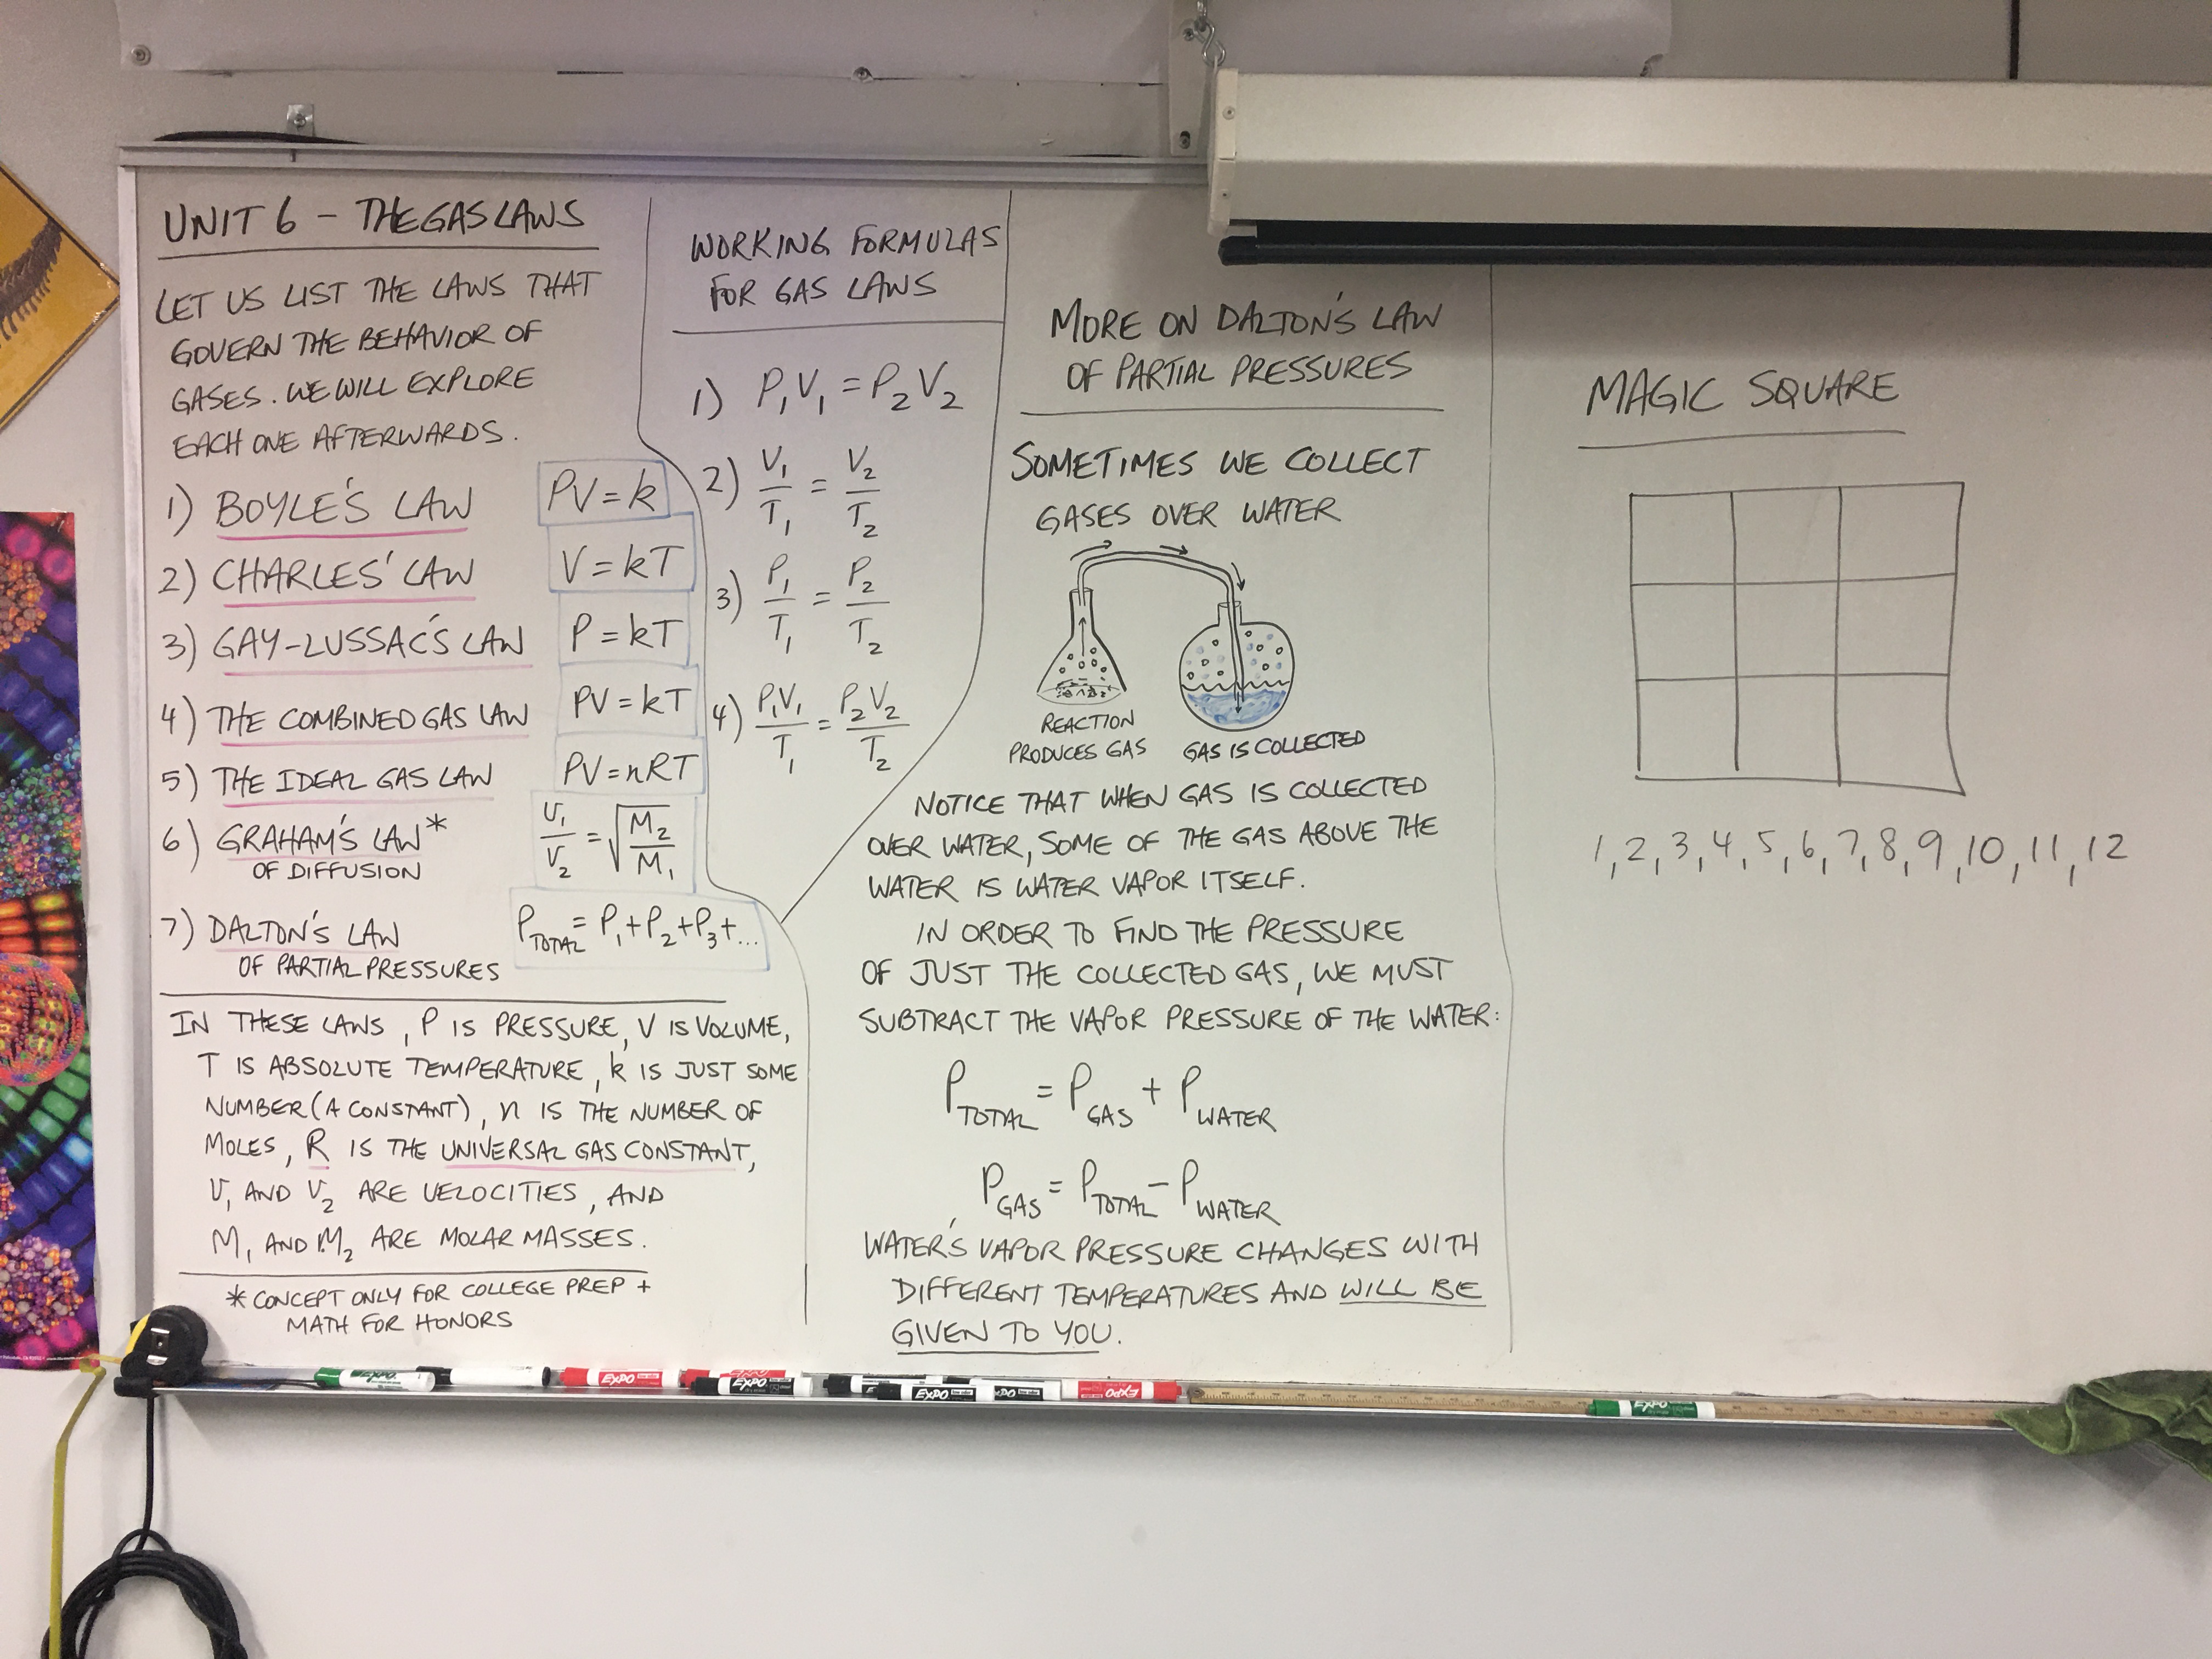 UNIT 6 - THE GAS LAWS
LET US LIST THE LAWS THAT
GOVERN THE BEHAVIOR OF
GASES. WE WILL EXPLORE
EACH ONE AFTERWARDS.
1) BOYLE'S LAW PV = k
2) CHARLES' LAW V = kT
3) GAY-LUSSAC'S LAW P = kT
4) THE COMBINED GAS LAW PV = kT
5) THE IDEAL GAS LAW PV = nRT
6) GRAHAM'S LAW* v₁/v₂ = √(M₂/M₁)
OF DIFFUSION
7) DALTON'S LAW P_TOTAL = P₁+P₂+P₃+...
OF PARTIAL PRESSURES
IN THESE LAWS, P IS PRESSURE, V IS VOLUME,
T IS ABSOLUTE TEMPERATURE, k IS JUST SOME
NUMBER (A CONSTANT), n IS THE NUMBER OF
MOLES, R IS THE UNIVERSAL GAS CONSTANT,
v₁ AND v₂ ARE VELOCITIES, AND
M₁ AND M₂ ARE MOLAR MASSES.
* CONCEPT ONLY FOR COLLEGE PREP +
MATH FOR HONORS
WORKING FORMULAS
FOR GAS LAWS
1) P₁V₁ = P₂V₂
2) V₁/T₁ = V₂/T₂
3) P₁/T₁ = P₂/T₂
4) P₁V₁/T₁ = P₂V₂/T₂
MORE ON DALTON'S LAW
OF PARTIAL PRESSURES
SOMETIMES WE COLLECT
GASES OVER WATER
REACTION
PRODUCES GAS
GAS IS COLLECTED
NOTICE THAT WHEN GAS IS COLLECTED
OVER WATER, SOME OF THE GAS ABOVE THE
WATER IS WATER VAPOR ITSELF.
IN ORDER TO FIND THE PRESSURE
OF JUST THE COLLECTED GAS, WE MUST
SUBTRACT THE VAPOR PRESSURE OF THE WATER:
P_TOTAL = P_GAS + P_WATER
P_GAS = P_TOTAL - P_WATER
WATER'S VAPOR PRESSURE CHANGES WITH
DIFFERENT TEMPERATURES AND WILL BE
GIVEN TO YOU.
MAGIC SQUARE
1, 2, 3, 4, 5, 6, 7, 8, 9, 10, 11, 12
EXPO
EXPO
EXPO
EXPO
EXPO
EXPO